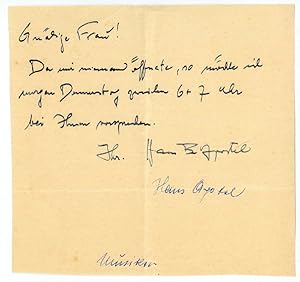 Gnädige Frau!
Da mir niemand öffnete, so möchte ich
morgen Donnerstag zwischen 6 + 7 Uhr
bei Ihnen vorsprechen.
Ihr. Hans E Apostel
Hans Apostel
Musiker